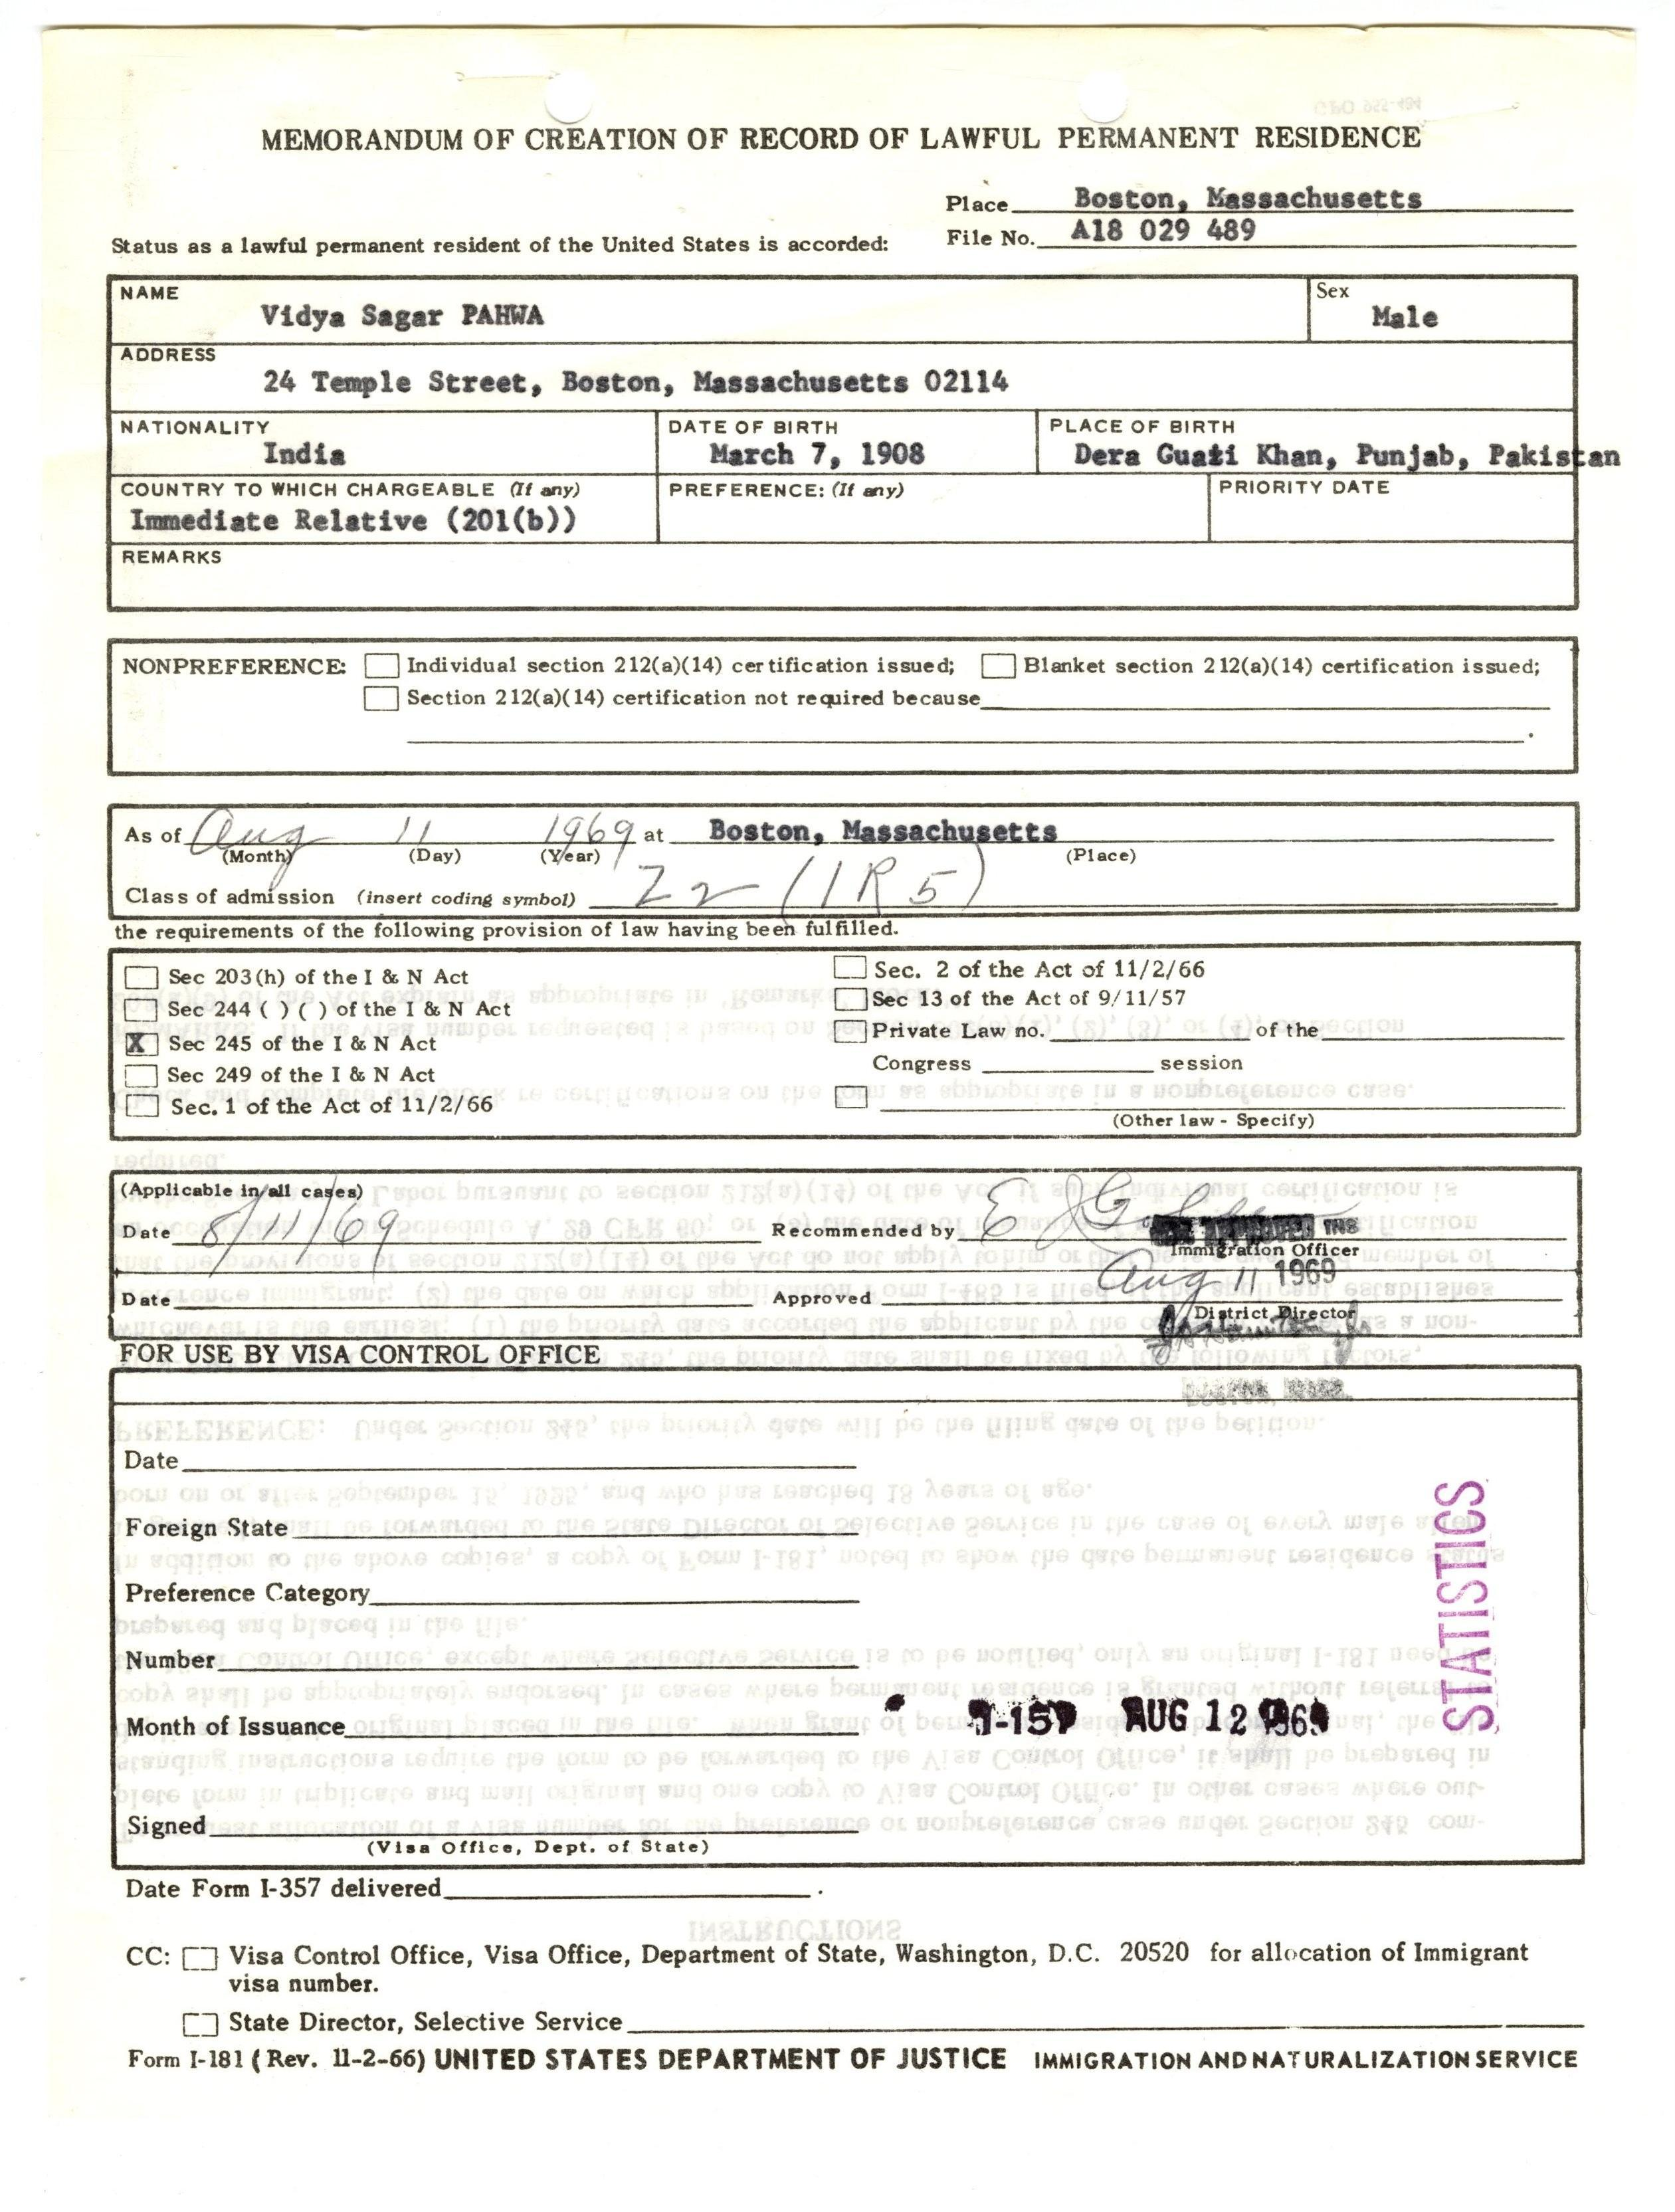 MEMORANDUM OF CREATION OF RECORD OF LAWFUL PERMANENT RESIDENCE
Place Boston, Massachusetts
Status as a lawful permanent resident of the United States is accorded: File No. A18 029 489
NAME Sex
Vidya Sagar PAHWA Male
ADDRESS
24 Temple Street, Boston, Massachusetts 02114
NATIONALITY DATE OF BIRTH PLACE OF BIRTH
India March 7, 1908 Dera Guazi Khan, Punjab, Pakistan
COUNTRY TO WHICH CHARGEABLE (If any) PREFERENCE: (If any) PRIORITY DATE
Immediate Relative (201(b))
REMARKS
NONPREFERENCE: Individual section 212(a)(14) certification issued; Blanket section 212(a)(14) certification issued;
Section 212(a)(14) certification not required because
.
As of Aug 11 1969 at Boston, Massachusetts
(Month) (Day) (Year) (Place)
Class of admission (insert coding symbol) Z2 (IR5)
the requirements of the following provision of law having been fulfilled.
Sec 203(h) of the I & N Act Sec. 2 of the Act of 11/2/66
Sec 244 ( ) ( ) of the I & N Act Sec 13 of the Act of 9/11/57
X Sec 245 of the I & N Act Private Law no. of the
Sec 249 of the I & N Act Congress session
Sec. 1 of the Act of 11/2/66
(Other law - Specify)
(Applicable in all cases)
Date 8/11/69 Recommended by
INS
Immigration Officer
Aug 11 1969
Date Approved
District Director
FOR USE BY VISA CONTROL OFFICE
Date
Foreign State
Preference Category
Number
Month of Issuance AUG 12 1969
STATISTICS
Signed
(Visa Office, Dept. of State)
Date Form I-357 delivered .
CC: Visa Control Office, Visa Office, Department of State, Washington, D.C. 20520 for allocation of Immigrant
visa number.
State Director, Selective Service
Form I-181 (Rev. 11-2-66) UNITED STATES DEPARTMENT OF JUSTICE IMMIGRATION AND NATURALIZATION SERVICE